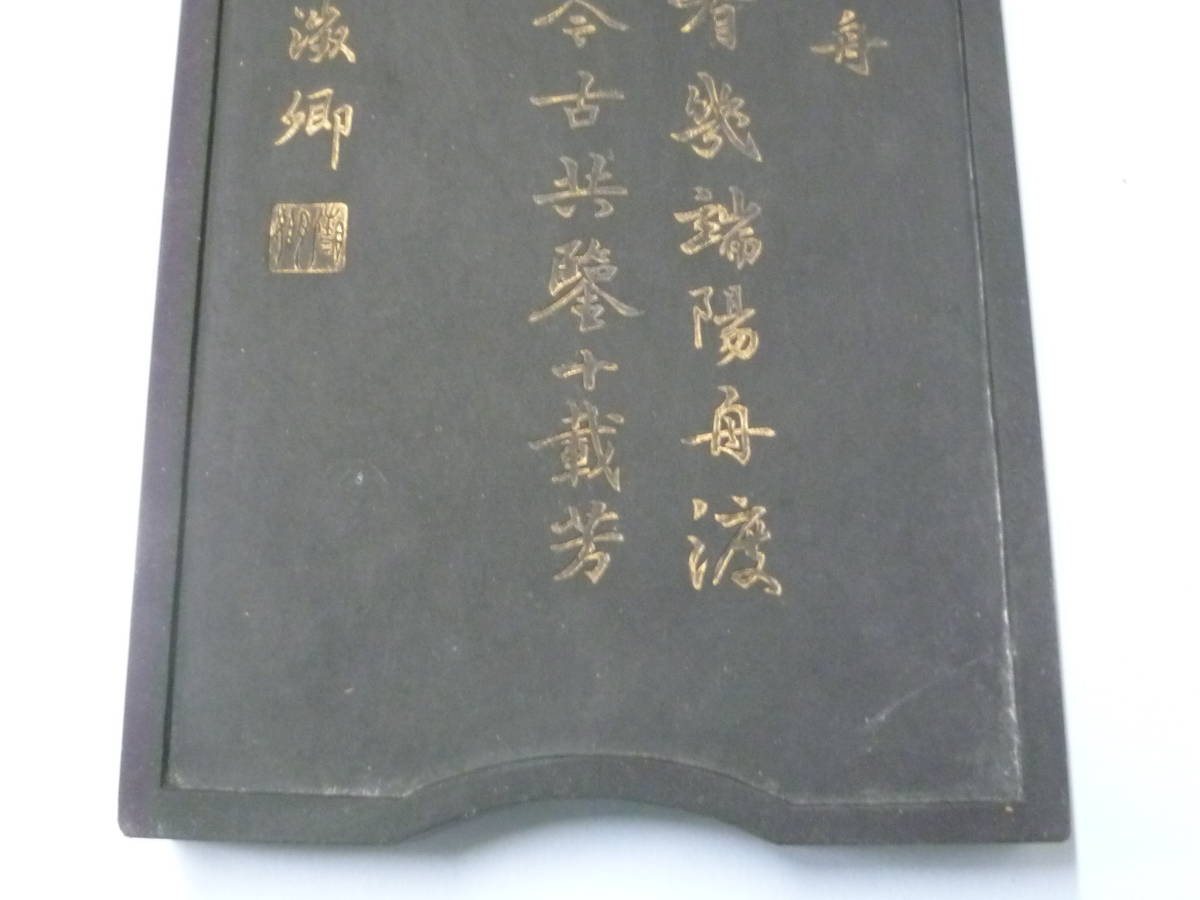 舟
看幾端陽舟渡
今古共鑒十載芳
澂卿